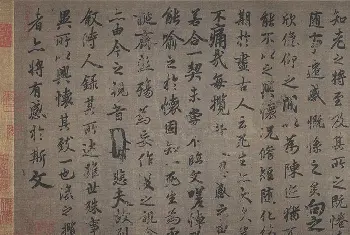 知老之將至及其所之既惓
隨事遷感慨係之矣向之
欣俛仰之間以為陳迹猶
能不以之興懷況脩短隨化
期於盡古人云死生亦大
不痛哉每攬昔人興感之由
若合一契未嘗不臨文嗟悼
能喻之於懷固知一死生為虛
誕齊彭殤為妄作後之視
亦由今之視昔悲夫故列
敘時人錄其所述雖世殊事
異所以興懷其致一也後之攬
者亦將有感於斯文